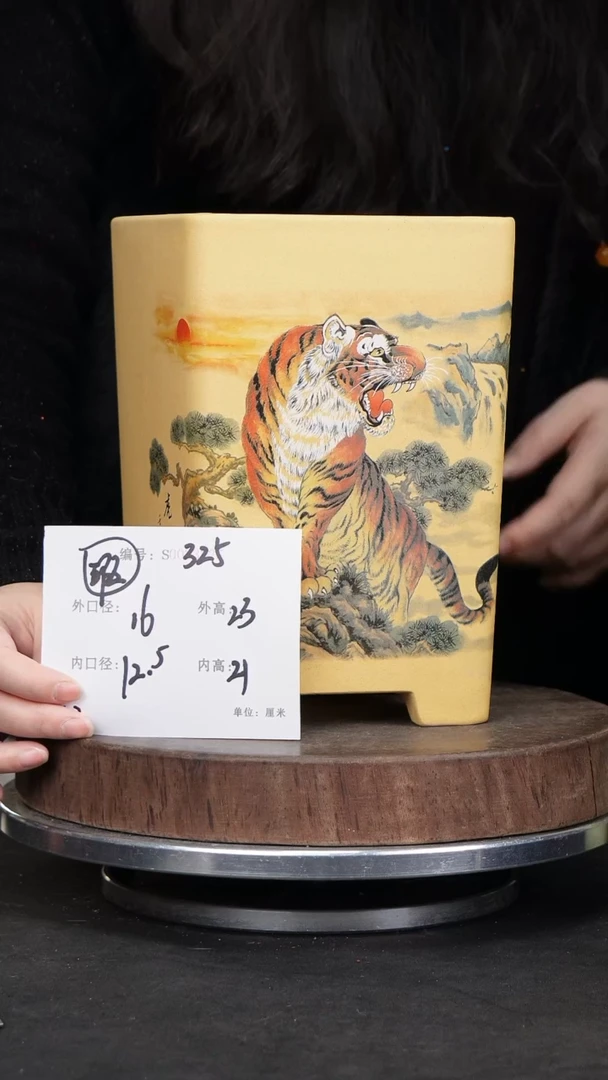 编号: S 325
外口径: 16 外高: 23
内口径: 12.5 内高: 21
单位: 厘米
虎